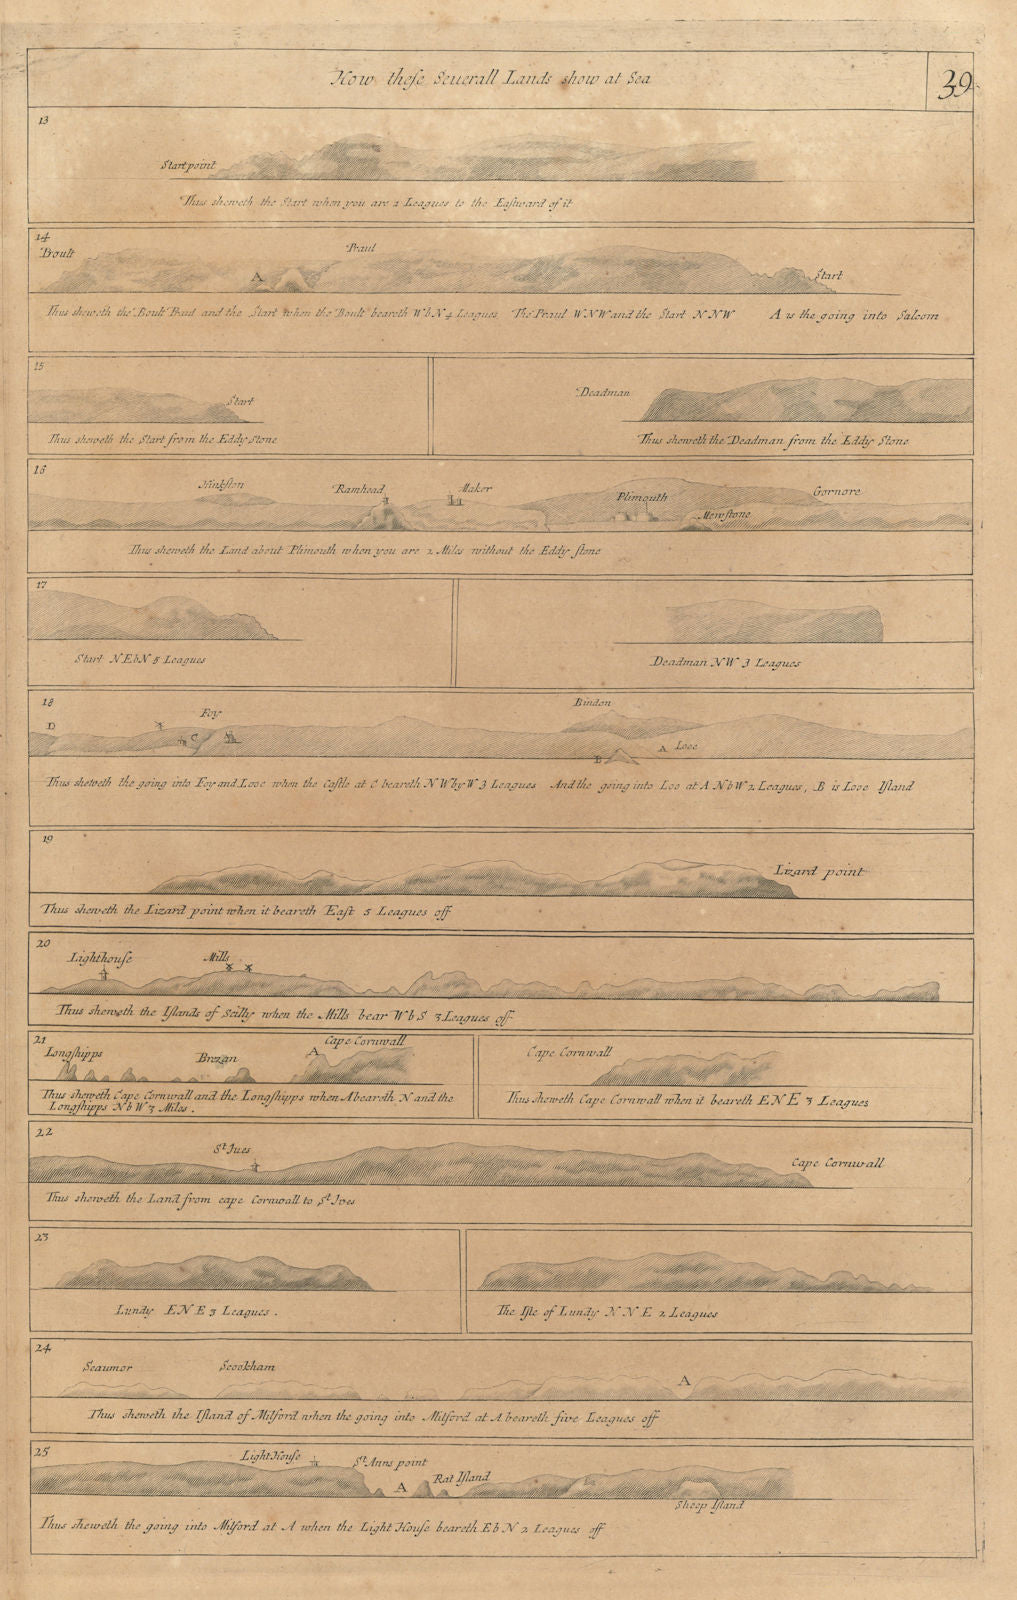 How theſe Severall Lands show at Sea
39
13
Startpoint
Thus sheweth the Start when you are 2 Leagues to the Eaſtward of it
14
Boult
Praul
A
Start
Thus sheweth the Boult Praul and the Start when the Boult beareth WbN 4 Leagues. The Praul WNW and the Start NNW A is the going into Salcom
15
Start
Thus sheweth the Start from the Eddy Stone
Deadman
Thus sheweth the Deadman from the Eddy Stone
16
Hinkſton
Ramhead
Maker
Plimouth
Mewſtone
Gornore
Thus sheweth the Land about Plimouth when you are 2 Miles without the Eddy ſtone
17
Start NEbN 5 Leagues
Deadman NW 3 Leagues
18
D
Foy
C
Bindon
A Looe
B
Thus sheweth the going into Foy and Looe when the Caſtle at C beareth NWbyW 3 Leagues And the going into Loo at A NbW 2 Leagues, B is Looe Iſland
19
Lizard point
Thus sheweth the Lizard point when it beareth East 5 Leagues off
20
Lighthouſe
Mills
Thus sheweth the Iſlands of Scilly when the Mills bear WbS 3 Leagues off
21
Longſhipps
Brezan
A
Cape Cornwall
Thus sheweth Cape Cornwall and the Longſhipps when A beareth N and the
Longſhipps NbW 3 Miles.
Cape Cornwall
Thus sheweth Cape Cornwall when it beareth ENE 3 Leagues
22
St. Jues
Cape Cornwall
Thus sheweth the Land from cape Cornwall to St. Ives
23
Lundy ENE 3 Leagues.
The Iſle of Lundy NNE 2 Leagues
24
Scaumor
Scookham
A
Thus sheweth the Iſland of Milford when the going into Milford at A beareth five Leagues off
25
Light Houſe
St. Anns point
A
Rat Iſland
Sheep Iſland
Thus sheweth the going into Milford at A when the Light Houſe beareth EbN 2 Leagues off